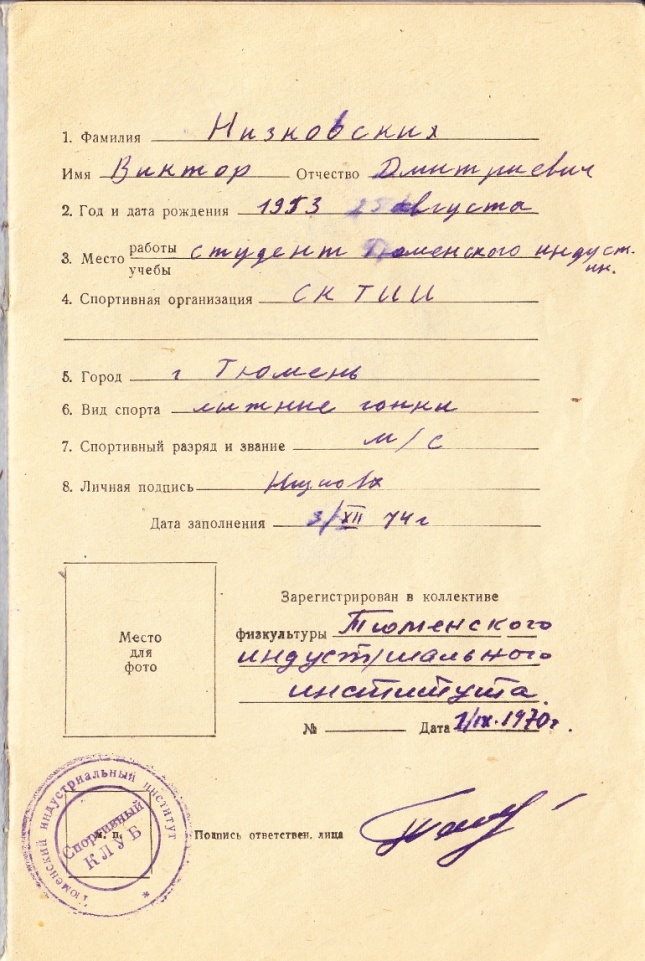 1. Фамилия Низковских
Имя Виктор Отчество Дмитриевич
2. Год и дата рождения 1953 25 августа
3. Место работы учебы студент Тюменского индуст. ин.
4. Спортивная организация СК ТИИ
5. Город г Тюмень
6. Вид спорта лыжные гонки
7. Спортивный разряд и звание м/с
8. Личная подпись
Дата заполнения 3/XII 74 г
Зарегистрирован в коллективе
физкультуры Тюменского
индустриального
института
Место
для
фото
№ Дата 1/IX-1970г.
Тюменский индустриальный институт
Спортивный
КЛУБ
м. п.
Подпись ответствен. лица